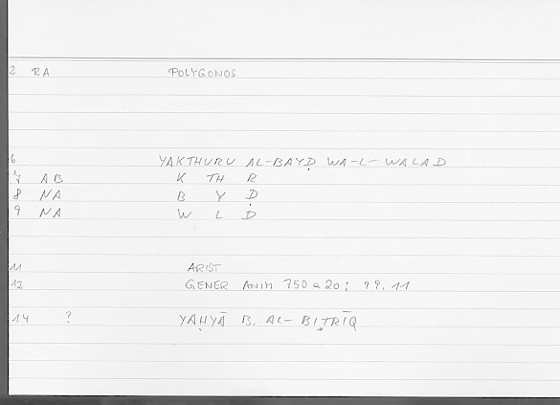 2 RA POLYGONOS
6 YAKTHURU AL-BAYḌ WA-L-WALAD
7 AB K TH R
8 NA B Y Ḍ
9 NA W L D
11 ARIST
12 GENER ANIM 750 a 20: 99.11
14 ? YAḤYĀ B. AL-BIṬRĪQ